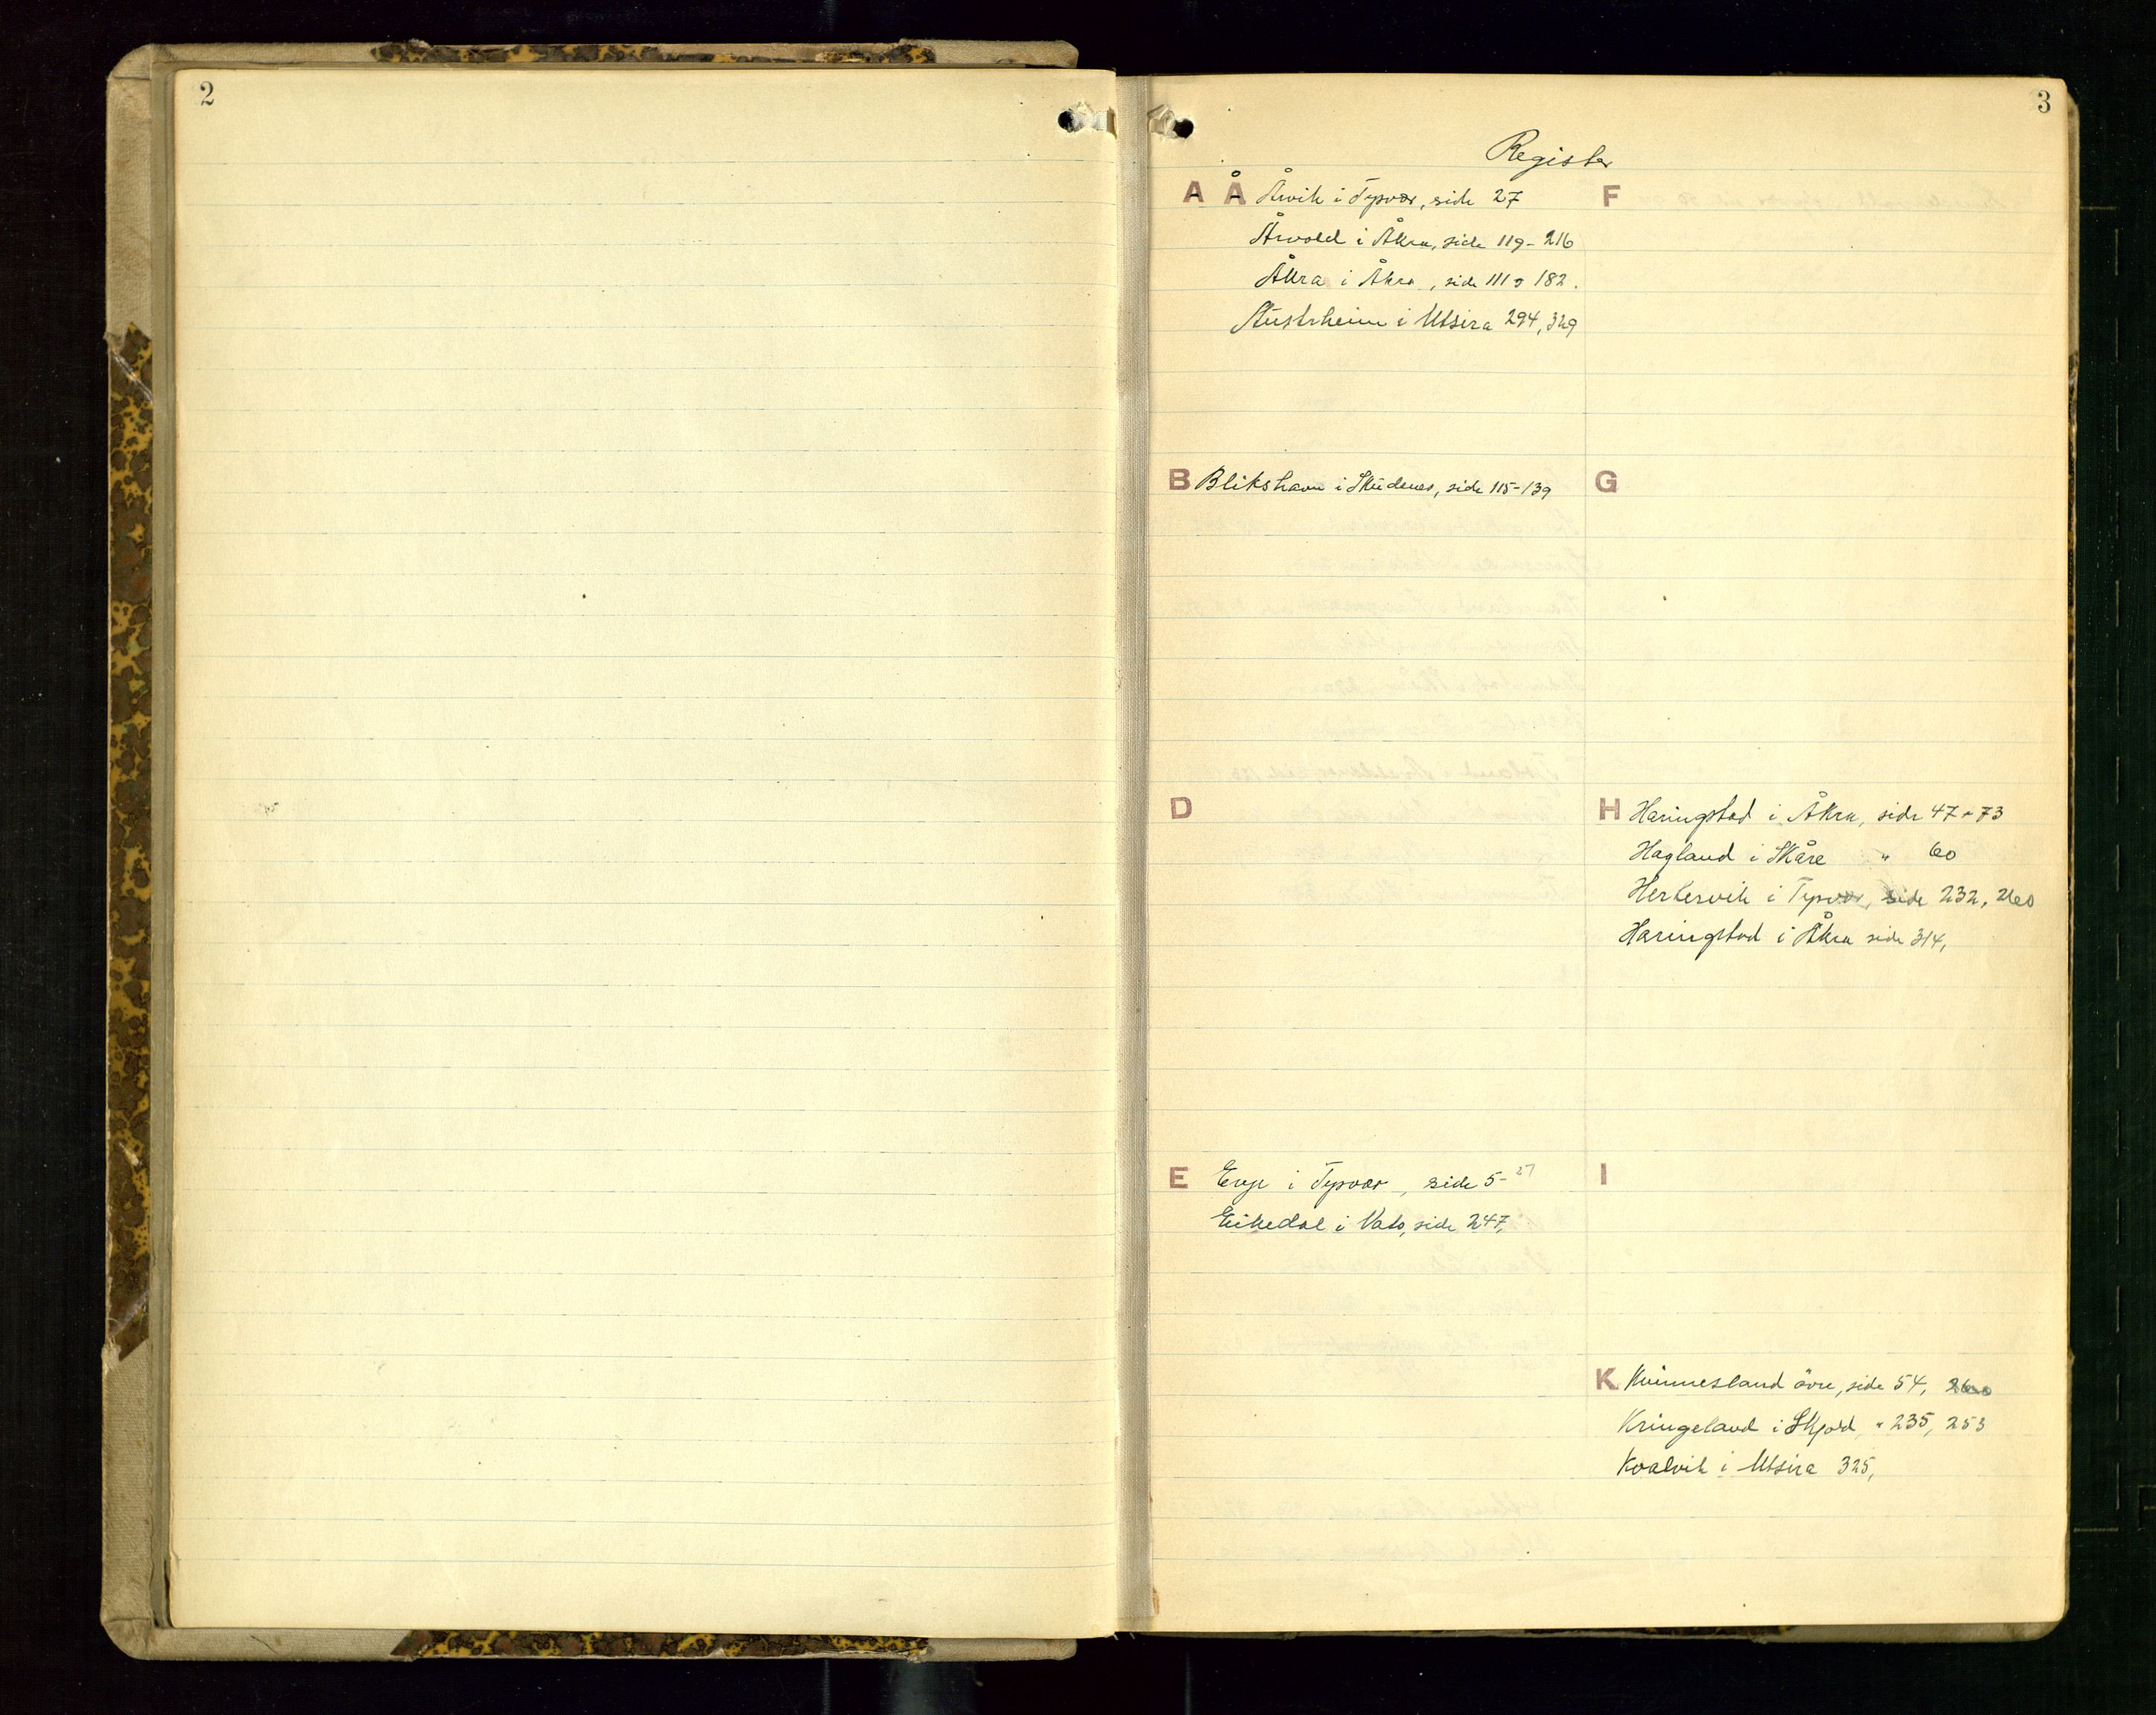 2
3
Register
A Å Årvik i Tysvær, side 27
Årvold i Åkra, side 119-216
Åkra i Åkra, side 111 o 182.
Austrheim i Utsira 294, 329
B Blikshavn i Skudenes, side 115-139
D
E Erge i Tysvær, side 5-27
Eikedal i Vats, side 247,
F
G
H Haringstad i Åkra, side 47 o 73
Hagland i Skåre " 60
Herkervik i Tysvær, side 232, 260
Haringstad i Åkra side 314,
I
K Kvinnesland övre, side 54, 260
Kringeland i Skjold, " 235, 253
Kvalvik i Utsira 325,